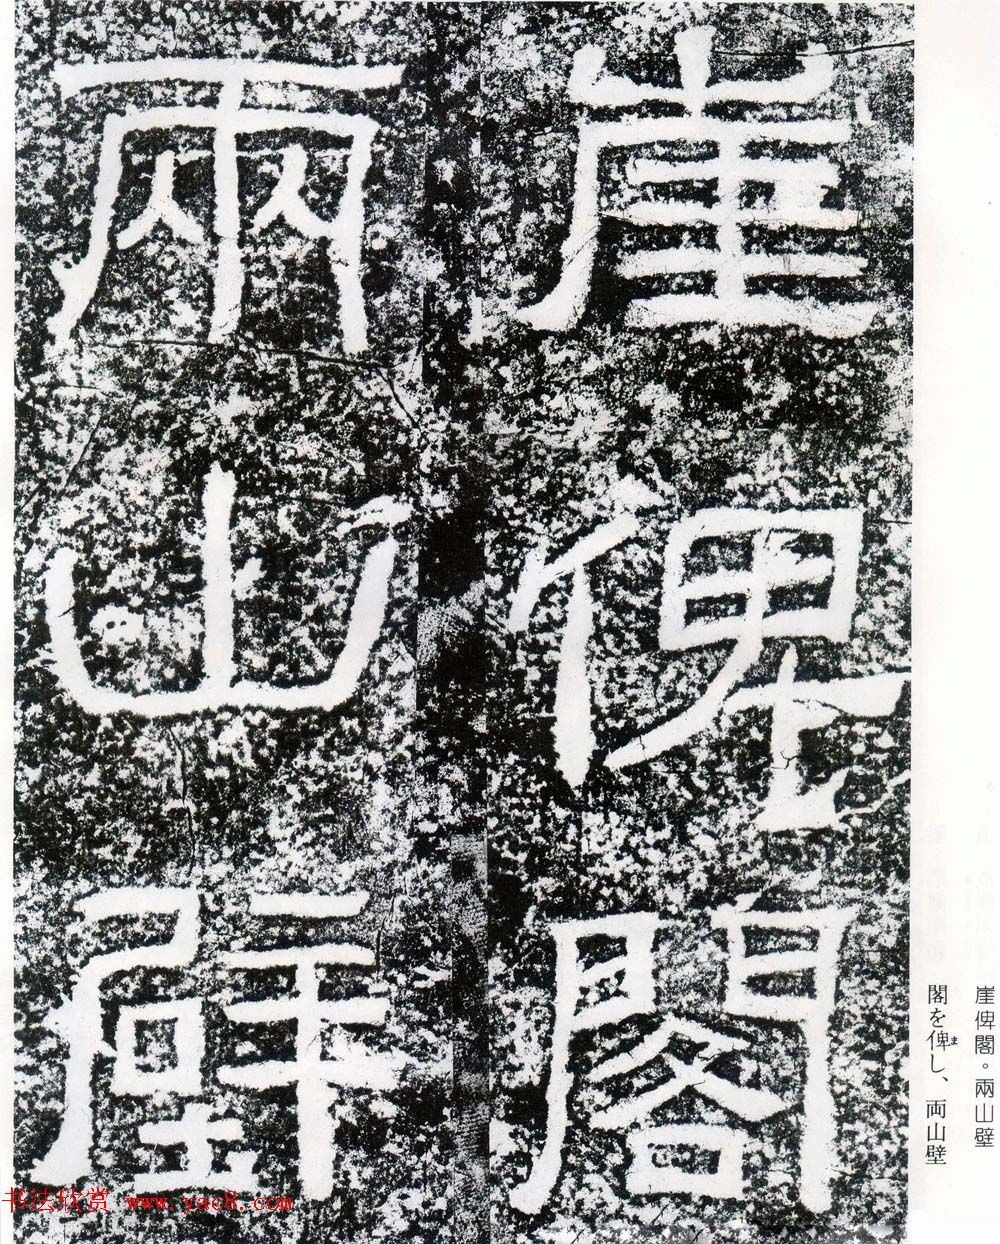 崖俾閣
兩山壁
崖俾閣。兩山壁
閣を俾し、両山壁
ま
书法欣赏 www.yac8.com